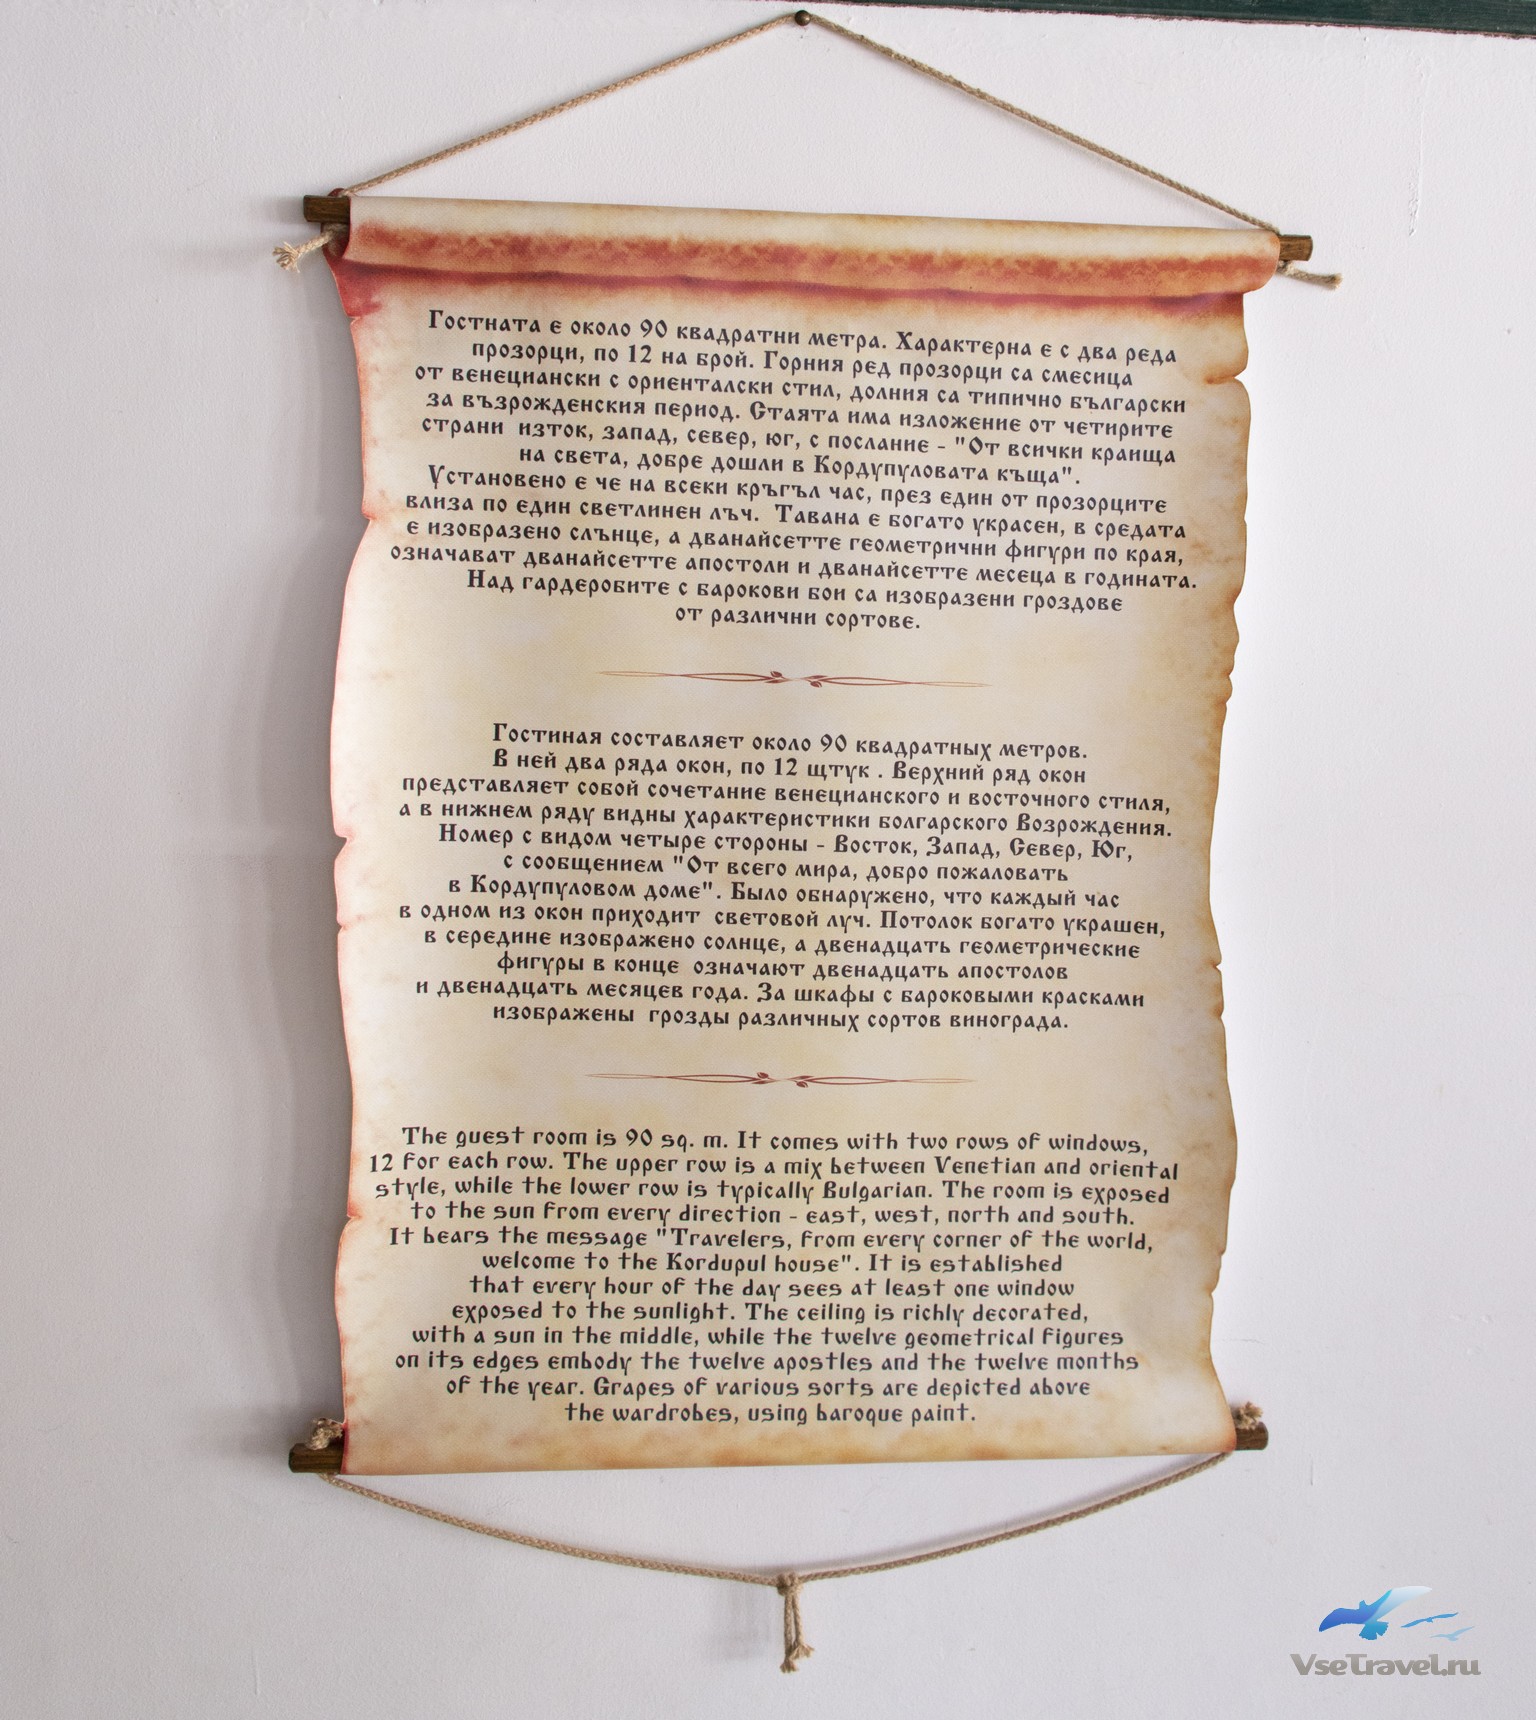 Гостната е около 90 квадратни метра. Характерна е с два реда
прозорци, по 12 на брой. Горния ред прозорци са смесица
от венециански с ориенталски стил, долния са типично български
за възрожденския период. Стаята има изложение от четирите
страни изток, запад, север, юг, с послание - "От всички краища
на света, добре дошли в Кордупуловата къща".
Установено е че на всеки кръгъл час, през един от прозорците
влиза по един светлинен лъч. Тавана е богато украсен, в средата
е изобразено слънце, а дванайсетте геометрични фигури по края,
означават дванайсетте апостоли и дванайсетте месеца в годината.
Над гардеробите с барокови бои са изобразени гроздове
от различни сортове.
Гостиная составляет около 90 квадратных метров.
В ней два ряда окон, по 12 щтук . Верхний ряд окон
представляет собой сочетание венецианского и восточного стиля,
а в нижнем ряду видны характеристики болгарского Возрождения.
Номер с видом четыре стороны - Восток, Запад, Север, Юг,
с сообщением "От всего мира, добро пожаловать
в Кордупуловом доме". Было обнаружено, что каждый час
в одном из окон приходит световой луч. Потолок богато украшен,
в середине изображено солнце, а двенадцать геометрические
фигуры в конце означают двенадцать апостолов
и двенадцать месяцев года. За шкафы с бароковыми красками
изображены грозды различных сортов винограда.
The guest room is 90 sq. m. It comes with two rows of windows,
12 for each row. The upper row is a mix between Venetian and oriental
style, while the lower row is typically Bulgarian. The room is exposed
to the sun from every direction - east, west, north and south.
It bears the message "Travelers, from every corner of the world,
welcome to the Kordupul house". It is established
that every hour of the day sees at least one window
exposed to the sunlight. The ceiling is richly decorated,
with a sun in the middle, while the twelve geometrical figures
on its edges embody the twelve apostles and the twelve months
of the year. Grapes of various sorts are depicted above
the wardrobes, using baroque paint.
VseTravel.ru